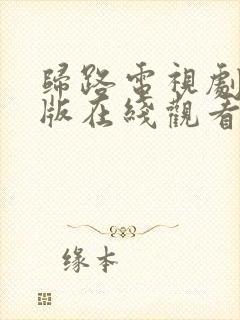 歸路電視劇
版在綫觀看
缘本